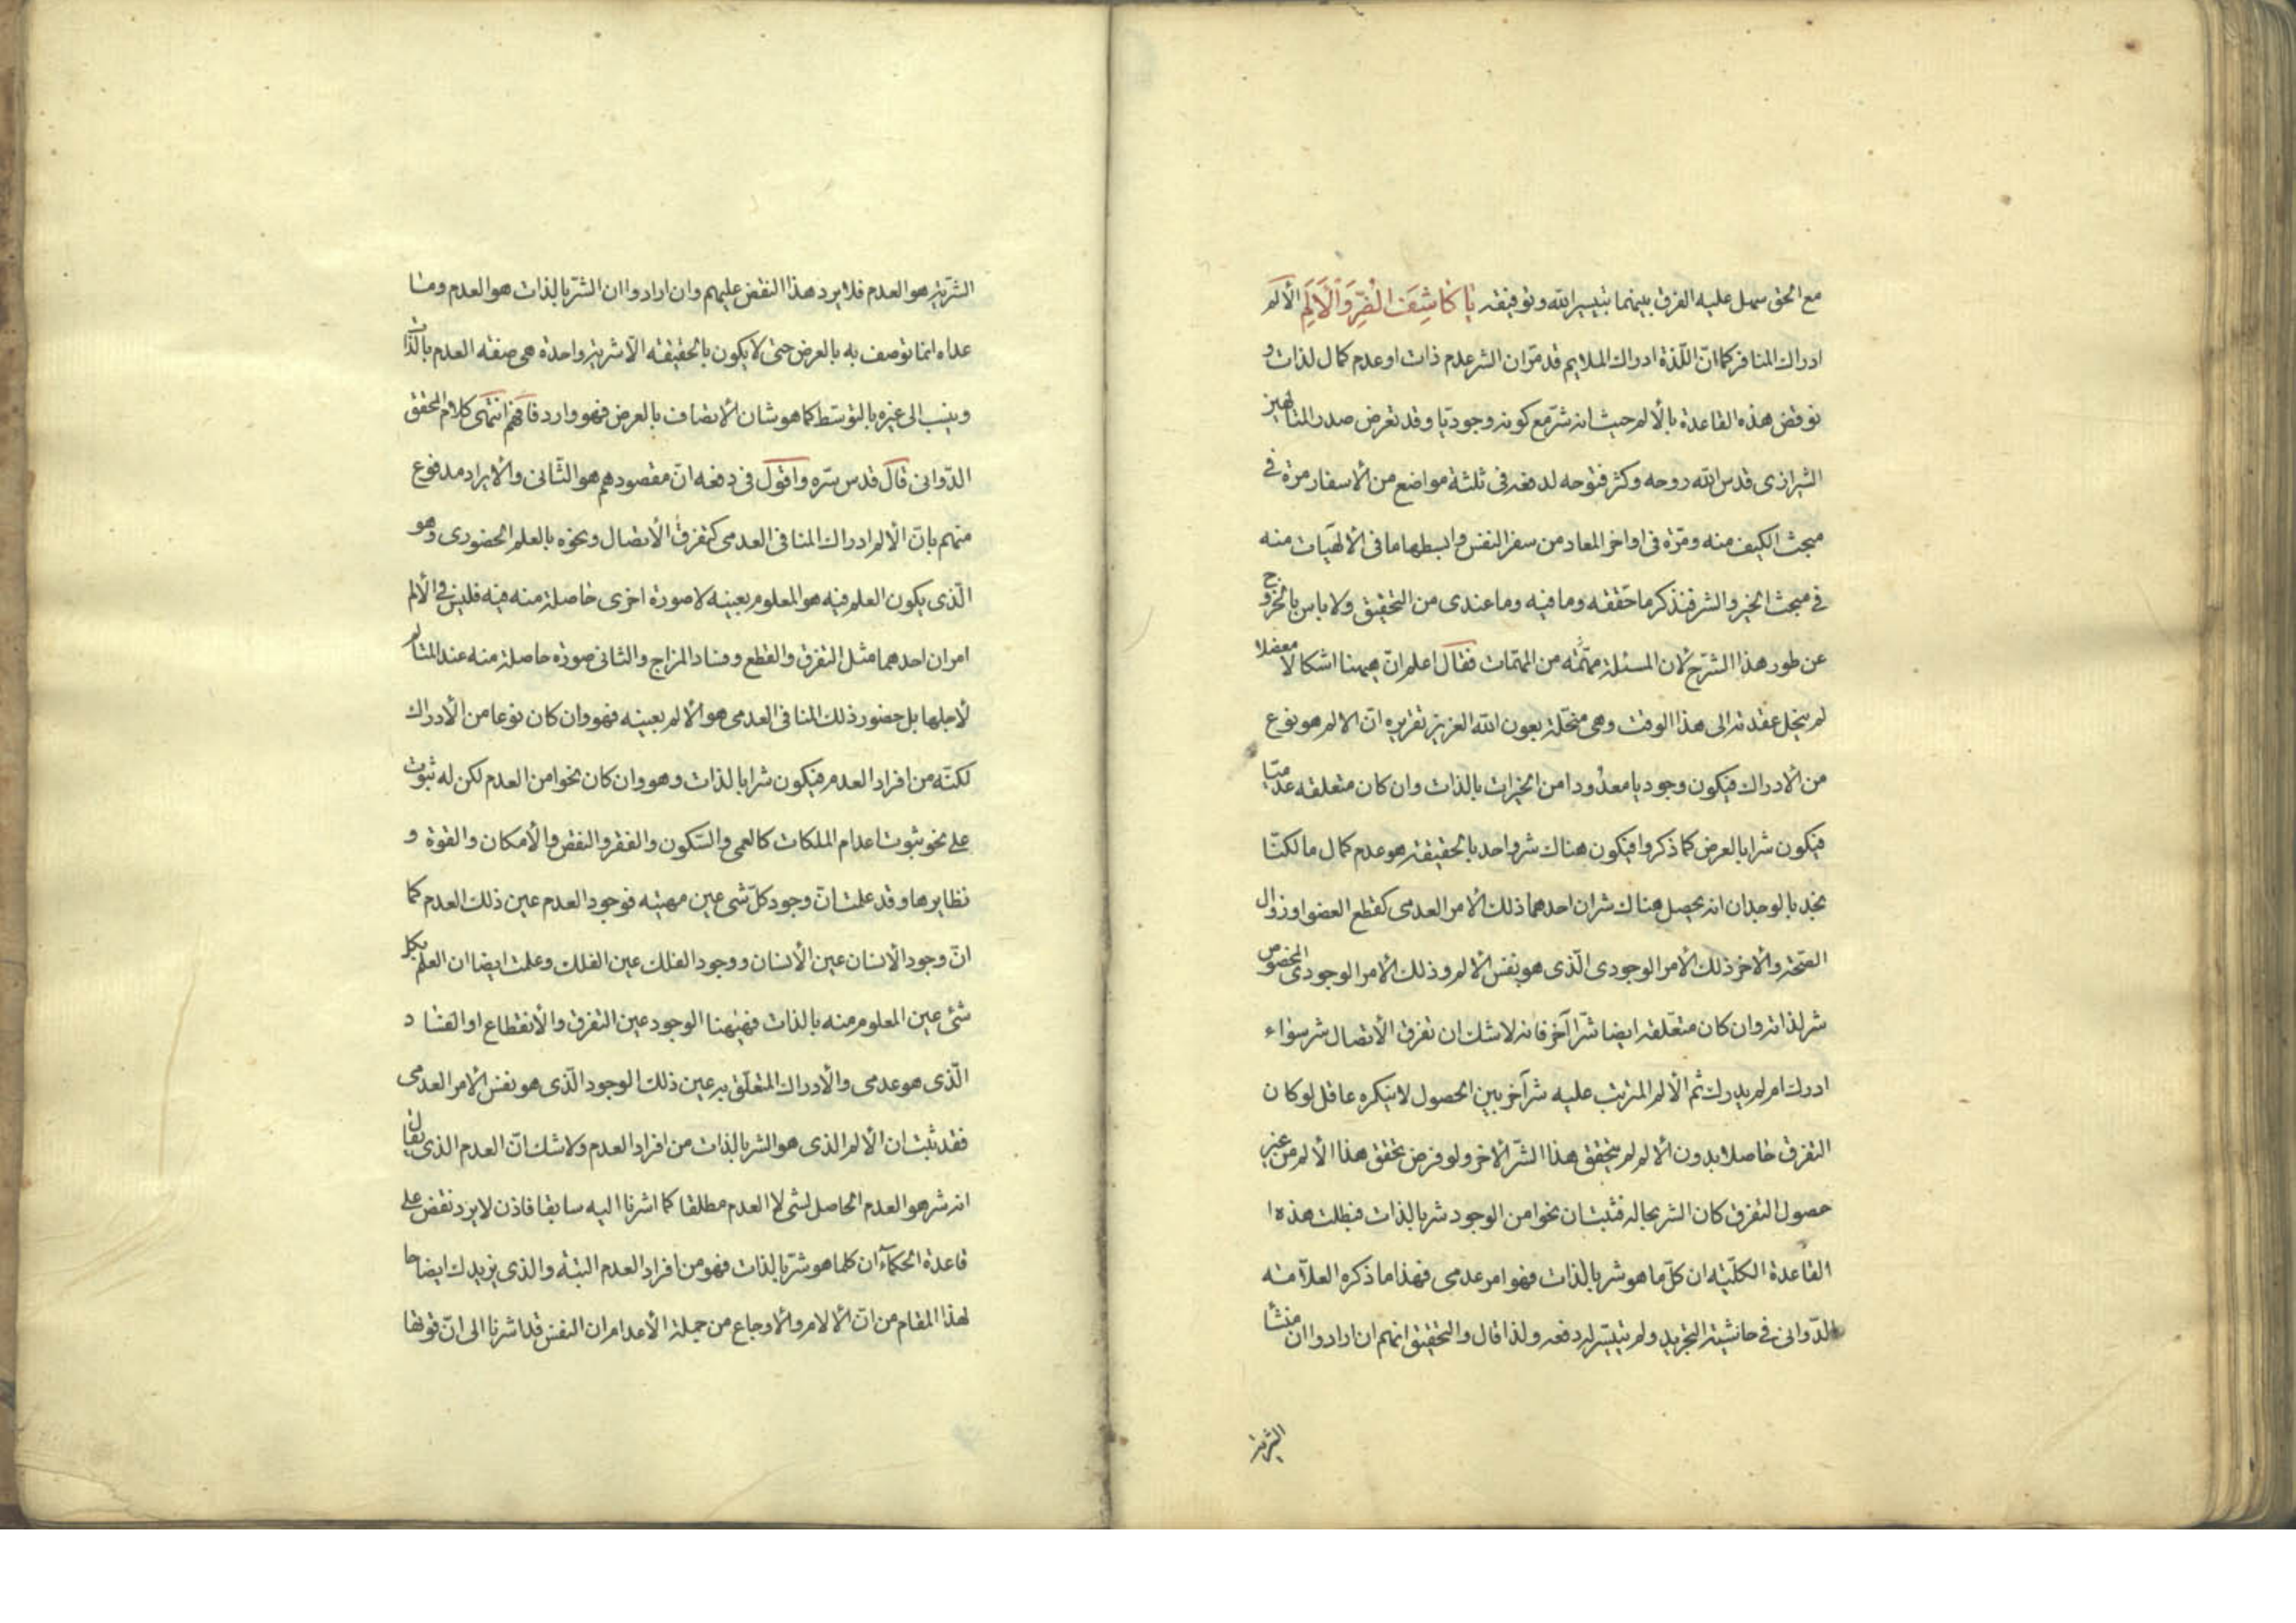 مع الحق سهل عليه الفرق بينهما بتيسير الله وتوفيقه يَا كَاشِفَ الْضُرِّ وَالْاَلَمِ الألم
ادراك المنافر كما انّ اللّذة ادراك الملايم قد مرّ ان الشر عدم ذات او عدم كمال لذات و
نوقض هذه القاعدة بالألم حيث انه شرّ مع كونه وجوديّا وقد تعرض صدر المتالهين
الشيرازى قدس الله روحه وكثر فتوحه لدفعه فى ثلثة مواضع من الأسفار مرة فى
مبحث الكيف منه ومرّة فى اواخر المعاد من سفر النفس وابسطها ما فى الألهيات منه
فى مبحث الخير والشر فنذكر ما حققه وما فيه وما عندى من التحقيق ولا باس بالخروج
عن طور هذا الشرح لأن المسئلة مهمّة من المهمّات فقال اعلم انّ ههنا اشكالا معضلا
لم ينحل عقدته الى هذا الوقت وهى منحلة بعون الله العزيز تقريره انّ الالم هو نوع
من الأدراك فيكون وجوديا معدودا من الخيرات بالذات وان كان متعلقه عدميّا
فيكون شرا بالعرض كما ذكروا فيكون هناك شر واحد بالحقيقة هو عدم كمال ما لكنّا
نجد بالوجدان انه يحصل هناك شران احدهما ذلك الأمر العدمى كقطع العضو او زوال
الصّحة والآخر ذلك الأمر الوجودى الّذى هو نفس الألم وذلك الأمر الوجودى المخصوص
شر لذاته وان كان متعلّقه ايضا شرّا آخر فانه لا شك ان تفرق الأتصال شر سواء
ادرك ام لم يدرك ثم الألم المترتب عليه شر آخر بين الحصول لا ينكره عاقل لو كان
التفرق حاصلا بدون الألم لم يتحقق هذا الشّر الآخر ولو فرض تحقق هذا الألم من غير
حصول التفرق كان الشر بحاله فثبت ان نحوا من الوجود شر بالذات فبطلت هذه ا
القاعدة الكلّيّة ان كلّ ما هو شر بالذات فهو امر عدمى فهذا ما ذكره العلاّمة
الدّوانى فى حاشية التجريد ولم يتيسّر له دفعه ولذا قال والتحقيق انهم ان ارادوا ان منشأ
الشرّية
الشرّية هو العدم فلا يرد هذا النقض عليهم وان ارادوا ان الشرّ بالذات هو العدم وما
عداه انما توصف به بالعرض حتى لا يكون بالحقيقة الّا شرية واحدة هى صفة العدم بالذات
وينسب الى غيره بالتوسّط كما هو شان الأتصاف بالعرض فهو وارد فافهم انتهى كلام المحقق
الدّوانى قال قدس سّره واقول فى دفعه انّ مقصودهم هو الثّانى والأيراد مدفوع
منهم بانّ الألم ادراك المنافى العدمى كتفرق الأتصال ونحوه بالعلم الحضورى وهو
الّذى يكون العلم فيه هو المعلوم بعينه لا صورة اخرى حاصلة منه فيه فليس فى الألم
امران احدهما مثل التفرق والقطع وفساد المزاج والثانى صورة حاصلة منه عند المتالم
لأجلها بل حضور ذلك المنافى العدمى هو الألم بعينه فهو وان كان نوعا من الأدراك
لكنّه من افراد العدم فيكون شرا بالذات وهو وان كان نحوا من العدم لكن له ثبوت
على نحو ثبوت اعدام الملكات كالعمى والسّكون والفقر والنقص والأمكان والقوة و
نظايرها وقد علمت انّ وجود كلّ شى عين مهيّته فوجود العدم عين ذلك العدم كما
انّ وجود الأنسان عين الأنسان ووجود الفلك عين الفلك وعلمت ايضا ان العلم بكل
شئ عين المعلوم منه بالذات فههنا الوجود عين التفرق والأنقطاع او الفساد
الّذى هو عدمى والأدراك المتعلّق به عين ذلك الوجود الّذى هو نفس الأمر العدمى
فقد ثبت ان الألم الذى هو الشر بالذات من افراد العدم ولا شك انّ العدم الذى يقال
انه شر هو العدم الحاصل لشى لا العدم مطلقا كما اشرنا اليه سابقا فاذن لا يرد نقض على
قاعدة الحكمآء ان كلما هو شرّ بالذات فهو من افراد العدم البتة والذى يزيدك ايضاحا
لهذا المقام من انّ الألام والأوجاع من جملة الأعدام ان النفس قد اشرنا الى انّ قوتها